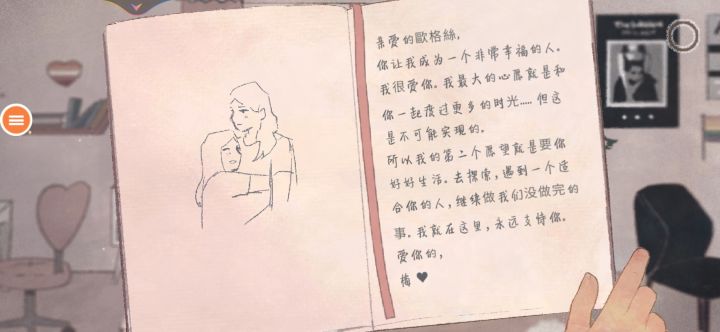 亲爱的歐格絲,
你让我成为一个非常幸福的人。
我很爱你。我最大的心愿就是和
你一起度过更多的时光..... 但这
是不可能实现的。
所以我的第二个愿望就是要你
好好生活。去探索,遇到一个适
合你的人,继续做我们没做完的
事。我就在这里,永远支持你。
爱你的,
梅 ♥